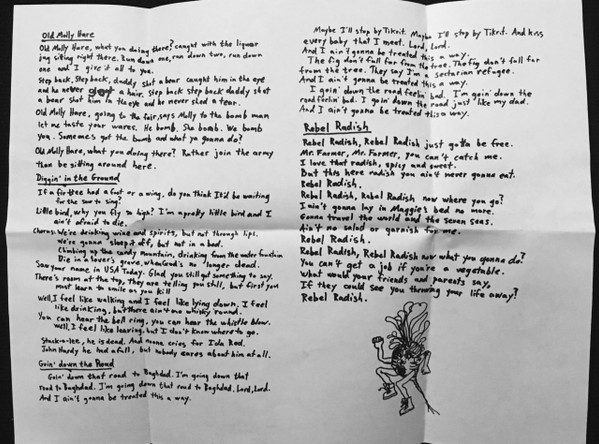 Old Molly Hare
Old Molly Hare, what you doing there? caught with the liquor
jug sitting right there. Run down one, run down two, run down
one and I give it all to you.
Step back, Step back, daddy shot a bear caught him in the eye
and he never got a hair, Step back step back daddy shot
a bear shot him in the eye and he never shed a tear.
Old Molly Hare, going to the fair, says Molly to the bomb man
let me taste your wares. He bomb. She bomb. We bomb
you. Someones got the bomb and what ya gonna do?
Old Molly Hare, what you doing there? Rather join the army
than be sitting around here.
Diggin' in the Ground
If a fir-tree had a foot or a wing, do you think It'd be waiting
for the saw to sing?
Little bird, why you fly so high? I'm a pretty little bird and I
ain't afraid to die.
Chorus: We're drinking wine and spirits, but not through lips.
We're gonna sleep it off, but not in a bed.
Climbing up the candy mountain, drinking from the water fountain
Die in a lover's grave, when God's no longer dead.
Saw your name in USA Today. Glad you still got something to say.
There's room at the top, they are telling you still, but first you
must learn to smile as you kill
Well, I feel like walking and I feel like lying down, I feel
like drinking, but there ain't no whisky 'round.
You can hear the bell ring, you can hear the whistle blow.
Well, I feel like leaving, but I don't know where to go.
Stack-a-lee, he is dead. And noone cries for Ida Red.
John Hardy he had a full, but nobody cares about him at all.
Goin' down the Road
Goin' down that road to Baghdad. I'm going down that
road to Baghdad. I'm going down that road to Baghdad. Lord, Lord.
And I ain't gonna be treated this a way.
Maybe I'll stop by Tikrit. Maybe I'll stop by Tikrit. And kiss
every baby that I meet. Lord, Lord.
And I ain't gonna be treated this a way.
The fig don't fall far from the tree. The fig don't fall far
from the tree. They say I'm a sectarian refugee.
And I ain't gonna be treated this a way.
I goin' down the road feelin' bad. I'm goin' down the
road feelin' bad. I goin' down the road just like my dad.
And I ain't gonna be treated this a way.
Rebel Radish
Rebel Radish, Rebel Radish just gotta be free.
Mr. Farmer, Mr. Farmer, you can't catch me.
I love that radish, spicy and sweet.
But this here radish you ain't never gonna eat.
Rebel Radish.
Rebel Radish, Rebel Radish now where you go?
I ain't gonna lay in Maggie's bed no more.
Gonna travel the world and the seven seas.
Ain't no salad or garnish for me.
Rebel Radish.
Rebel Radish, Rebel Radish now what you gonna do?
You can't get a job if you're a vegetable.
What would your friends and parents say,
If they could see you throwing your life away?
Rebel Radish.